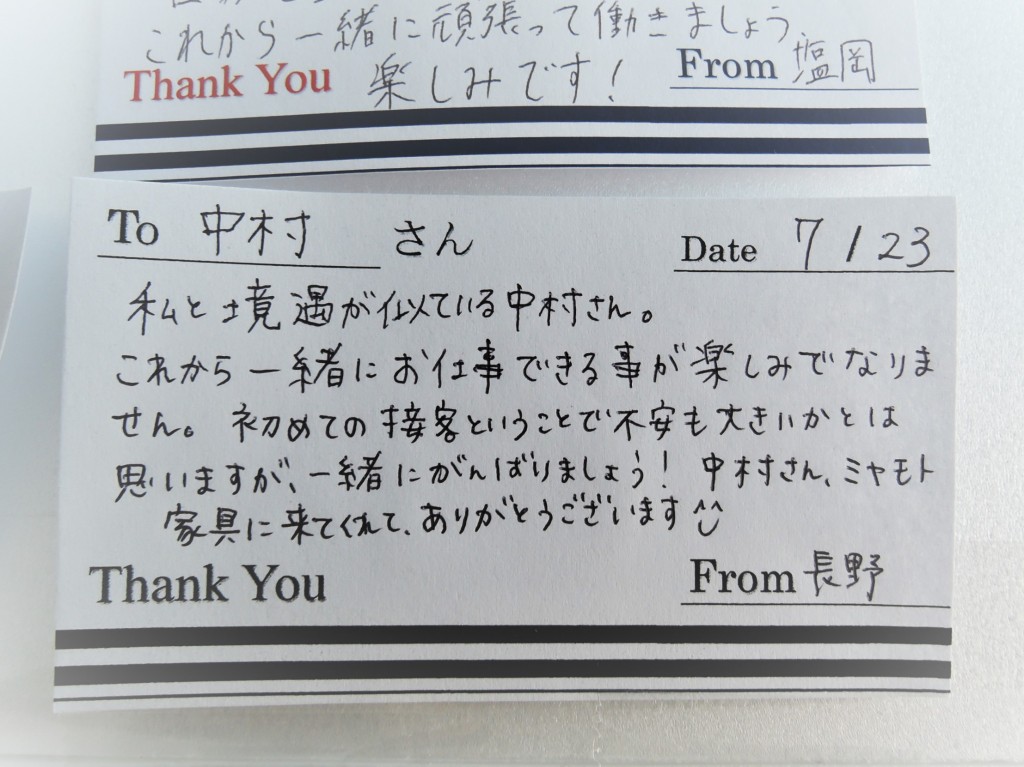 これから一緒に頑張って働きましょう。
Thank You 楽しみです! From 塩岡
To 中村 さん Date 7/23
私と境遇が似ている中村さん。
これから一緒にお仕事できる事が楽しみでなりま
せん。初めての接客ということで不安も大きいかとは
思いますが、一緒にがんばりましょう! 中村さん、ミヤモト
家具に来てくれて、ありがとうございます^^
Thank You From 長野